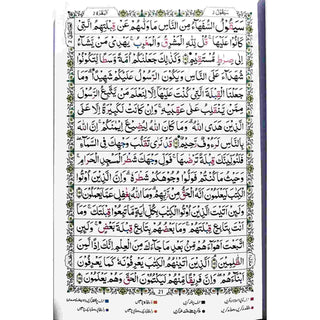 البقرة ٢ سيقول ٢
سَيَقُوْلُ السُّفَهَآءُ مِنَ النَّاسِ مَا وَلّٰىهُمْ عَنْ قِبْلَتِهِمُ الَّتِيْ
كَانُوْا عَلَيْهَا ؕ قُلْ لِّلّٰهِ الْمَشْرِقُ وَالْمَغْرِبُ ؕ يَهْدِيْ مَنْ يَّشَآءُ
اِلٰى صِرَاطٍ مُّسْتَقِيْمٍ وَكَذٰلِكَ جَعَلْنٰكُمْ اُمَّةً وَّسَطًا لِّتَكُوْنُوْا
شُهَدَآءَ عَلَى النَّاسِ وَيَكُوْنَ الرَّسُوْلُ عَلَيْكُمْ شَهِيْدًا ؕ وَمَا
جَعَلْنَا الْقِبْلَةَ الَّتِيْ كُنْتَ عَلَيْهَآ اِلَّا لِنَعْلَمَ مَنْ يَّتَّبِعُ الرَّسُوْلَ
مِمَّنْ يَّنْقَلِبُ عَلٰى عَقِبَيْهِ ؕ وَاِنْ كَانَتْ لَكَبِيْرَةً اِلَّا عَلَى
الَّذِيْنَ هَدَى اللّٰهُ ؕ وَمَا كَانَ اللّٰهُ لِيُضِيْعَ اِيْمَانَكُمْ ؕ اِنَّ اللّٰهَ
بِالنَّاسِ لَرَءُوْفٌ رَّحِيْمٌ قَدْ نَرٰى تَقَلُّبَ وَجْهِكَ فِي السَّمَآءِ
فَلَنُوَلِّيَنَّكَ قِبْلَةً تَرْضٰىهَا فَوَلِّ وَجْهَكَ شَطْرَ الْمَسْجِدِ الْحَرَامِ
وَحَيْثُ مَا كُنْتُمْ فَوَلُّوْا وُجُوْهَكُمْ شَطْرَهٗ ؕ وَاِنَّ الَّذِيْنَ اُوْتُوا
الْكِتٰبَ لَيَعْلَمُوْنَ اَنَّهُ الْحَقُّ مِنْ رَّبِّهِمْ ؕ وَمَا اللّٰهُ بِغَافِلٍ عَمَّا يَعْمَلُوْنَ
وَلَئِنْ اَتَيْتَ الَّذِيْنَ اُوْتُوا الْكِتٰبَ بِكُلِّ اٰيَةٍ مَّا تَبِعُوْا قِبْلَتَكَ ۚ وَمَآ
اَنْتَ بِتَابِعٍ قِبْلَتَهُمْ ۚ وَمَا بَعْضُهُمْ بِتَابِعٍ قِبْلَةَ بَعْضٍ ؕ وَلَئِنِ
اتَّبَعْتَ اَهْوَآءَهُمْ مِّنْۢ بَعْدِ مَا جَآءَكَ مِنَ الْعِلْمِ اِنَّكَ اِذًا لَّمِنَ
الظّٰلِمِيْنَ اَلَّذِيْنَ اٰتَيْنٰهُمُ الْكِتٰبَ يَعْرِفُوْنَهٗ كَمَا يَعْرِفُوْنَ
اَبْنَآءَهُمْ ؕ وَاِنَّ فَرِيْقًا مِّنْهُمْ لَيَكْتُمُوْنَ الْحَقَّ وَهُمْ يَعْلَمُوْنَ